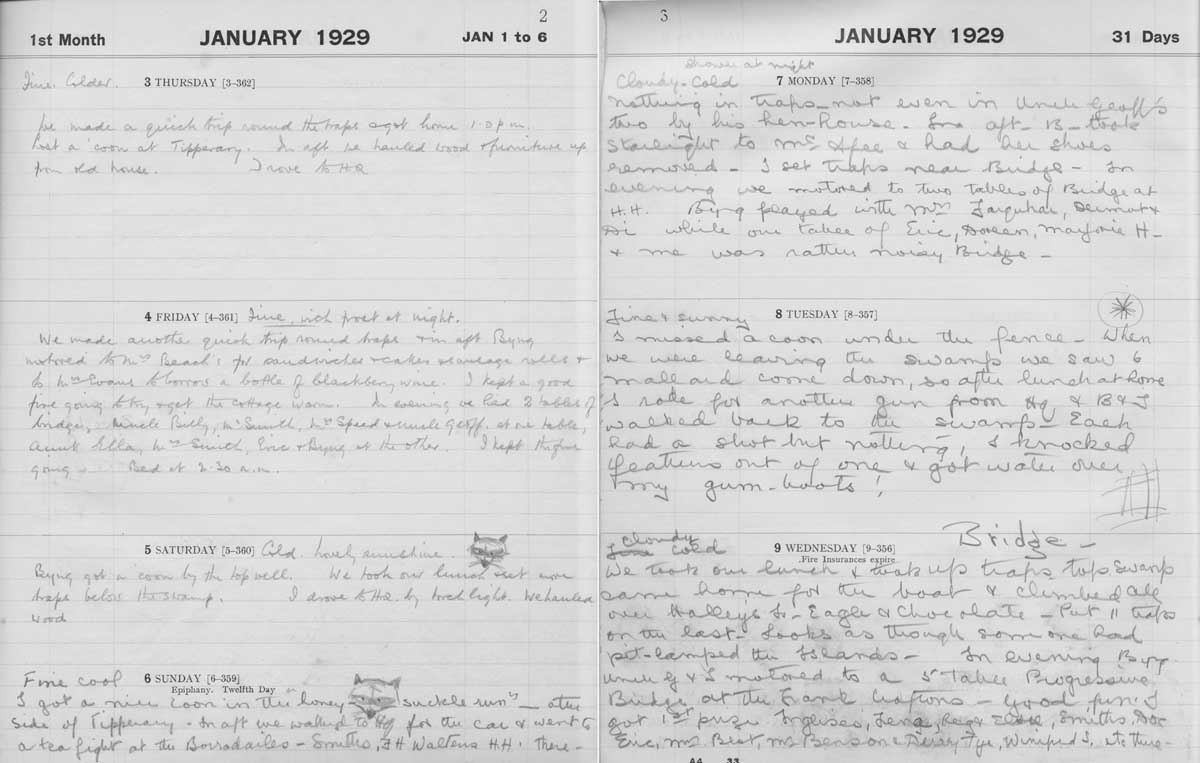 2
1st Month JANUARY 1929 JAN 1 to 6
Fine. Colder. 3 THURSDAY [3–362]
We made a quick trip round the traps & got home 1.0 p.m.
Lost a 'coon at Tipperary. In aft. we hauled wood & furniture up
from old house. I rove to HQ
4 FRIDAY [4–361] Fine, with frost at night.
We made another quick trip round traps & in aft Byng
motored to Mrs Beach's for sandwiches & cakes & sausage rolls &
to Mrs Evans to borrow a bottle of blackberry wine. I kept a good
fire going to try & get the cottage warm. In evening we had 2 tables of
bridge, Uncle Billy, Mr Smith, Mrs Speed & Uncle Geoff. at one table,
Aunt Ella, Mrs Smith, Eric & Byng at the other. I kept things
going. Bed at 2.30 a.m.
5 SATURDAY [5–360] Cold. Lovely sunshine.
Byng got a coon by the top well. We took our lunch & set more
traps below the swamp. I drove to HQ. by torchlight. We hauled
wood
Fine cool 6 SUNDAY [6–359]
Epiphany. Twelfth Day
I got a nice coon in the "honey suckle run" – other
side of Tipperary. In aft we walked to HQ for the car & went to
a tea fight at the Borradailes – Smiths, F H Walters H.H. there –
3
JANUARY 1929 31 Days
shower at night
Cloudy – Cold 7 MONDAY [7–358]
nothing in traps – not even in Uncle Geoff's
two by his hen-house. In aft – B – took
Starlight to & had her shoes
removed – I set traps near Bridge – In
evening we motored to two tables of Bridge at
H.H. Byng played with Mrs Farquhar, Dermot &
Di while our table of Eric, Doreen, Marjorie H –
& me was rather noisy Bridge –
Fine & sunny 8 TUESDAY [8–357]
I missed a coon under the fence – When
we were leaving the swamp we saw 6
mallard come down, so after lunch at home
I rode for another gun from HQ & B & I
walked back to the swamp – Each
had a shot but nothing, I knocked
feathers out of one & got water over
my gum-boots!
Bridge –
cloudy
cold 9 WEDNESDAY [9–356]
Fire Insurances expire
We took our lunch & took up traps top swamp
came home for the boat & climbed all
over Halleys Is – Eagle & Chocolate – Put 11 traps
on the last – Looks as though some one had
pit-lamped the Islands – In evening Byng
Uncle G & I motored to a 5 Table Progressive
Bridge at the Frank Croftons – good fun. I
got 1st prize Inglises, Smiths, Doc
Eric, Mrs. Best, Mrs Benson & Derry Tye, Winifred S. etc there –
A4 33